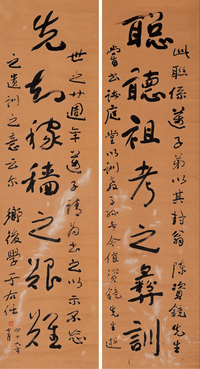 此聯係蓮子弟以其封翁 陳資鏡先生
聰聽祖考之彝訓
嘗書諸庭堂以訓子孫今值資鏡先生逝
世之廿週年蓮子請為書之以示不忘
先知稼穡之艱難
之遺訓之意云尔 鄉後學于右任